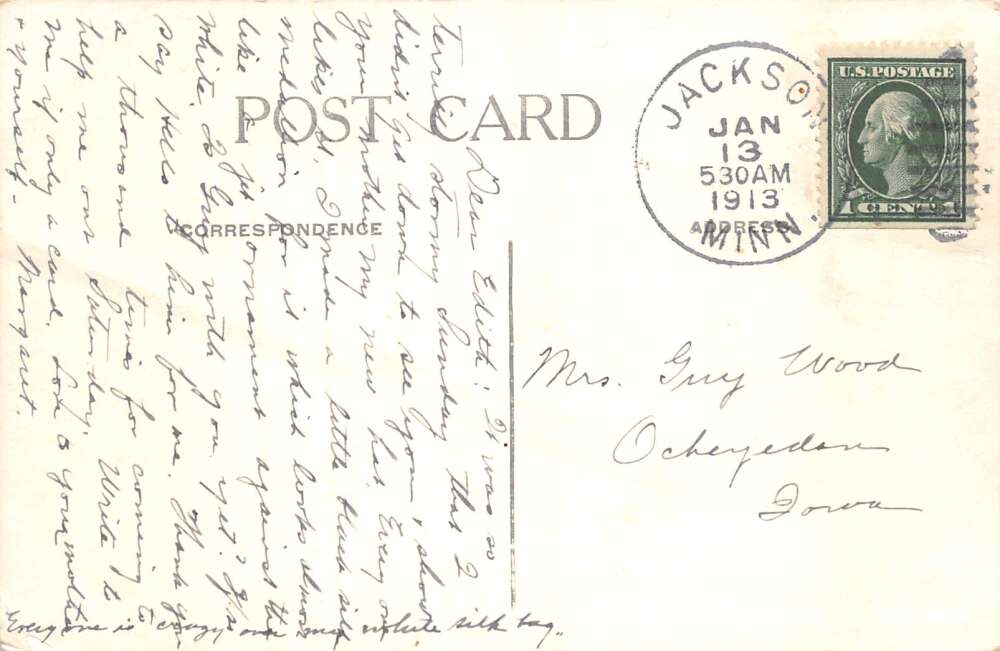 POST CARD
CORRESPONDENCE
ADDRESS
JACKSON
JAN
13
530AM
1913
MINN.
U.S.POSTAGE
1 CENT 1
Dear Edith: It was so
terribly stormy Sunday that I
didn't get down to see you, show
your mother my new hat. Every one
likes it. I made a little black silk
medallion for it which looks almost
like a jet ornament against the
white. Is Guy with you yet? If so
say Hello to him for me. Thank you
a thousand times for coming to
help me out Saturday. Write to
me if only a card. Love to your mother
& yourself -
Margaret.
Everyone is crazy over my white silk bag.
Mrs. Guy Wood
Ocheyedan
Iowa